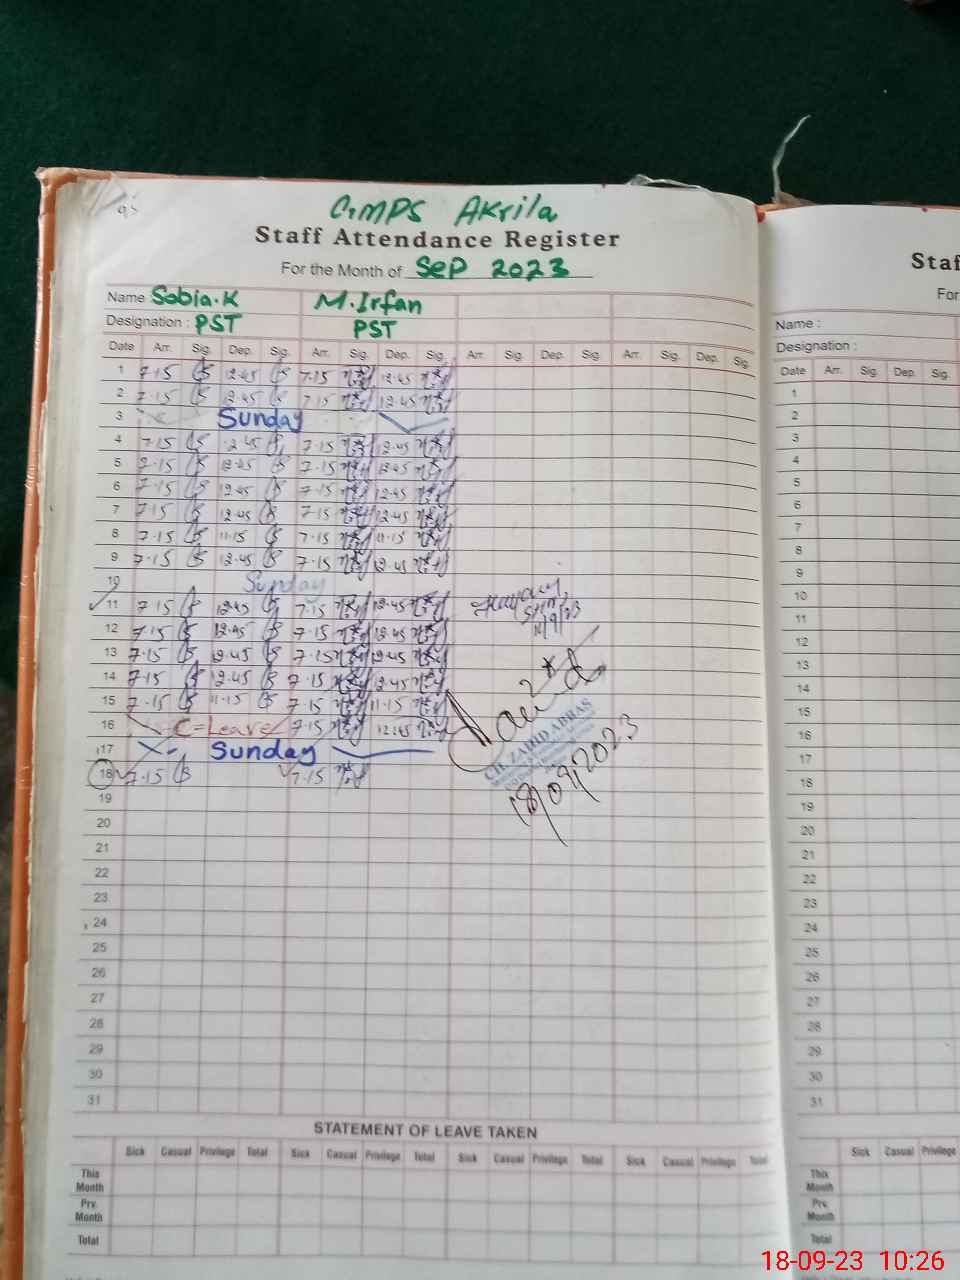 GMPS Akrila
Staff Attendance Register
For the Month of Sep 2023
Name : Sobia.K M.Irfan
Designation : PST PST
Date Arr. Sig. Dep. Sig. Arr. Sig. Dep. Sig. Arr. Sig. Dep. Sig. Arr. Sig. Dep. Sig.
1 7.15 12.45 7.15 12.45
2 7.15 12.45 7.15 12.45
3 Sunday
4 7.15 12.45 7.15 12.45
5 7.15 12.45 7.15 12.45
6 7.15 12.45 7.15 12.45
7 7.15 12.45 7.15 12.45
8 7.15 11.15 7.15 11.15
9 7.15 12.45 7.15 12.45
10 Sunday
11 7.15 12.45 7.15 12.45
12 7.15 12.45 7.15 12.45
13 7.15 12.45 7.15 12.45
14 7.15 12.45 7.15 12.45
15 7.15 11.15 7.15 11.15
16 C=Leave 7.15 12.45
17 Sunday
18 7.15 7.15
19
20
21
22
23
24
25
26
27
28
29
30
31
CH. ZAHID ABBAS
18/09/2023
STATEMENT OF LEAVE TAKEN
Sick Casual Privilege Total Sick Casual Privilege Total Sick Casual Privilege Total Sick Casual Privilege Total
This Month
Prv. Month
Total
Staf
For
Name :
Designation :
Date Arr. Sig. Dep. Sig.
1
2
3
4
5
6
7
8
9
10
11
12
13
14
15
16
17
18
19
20
21
22
23
24
25
26
27
28
29
30
31
Sick Casual Privilege
This Month
Prv. Month
Total
18-09-23 10:26